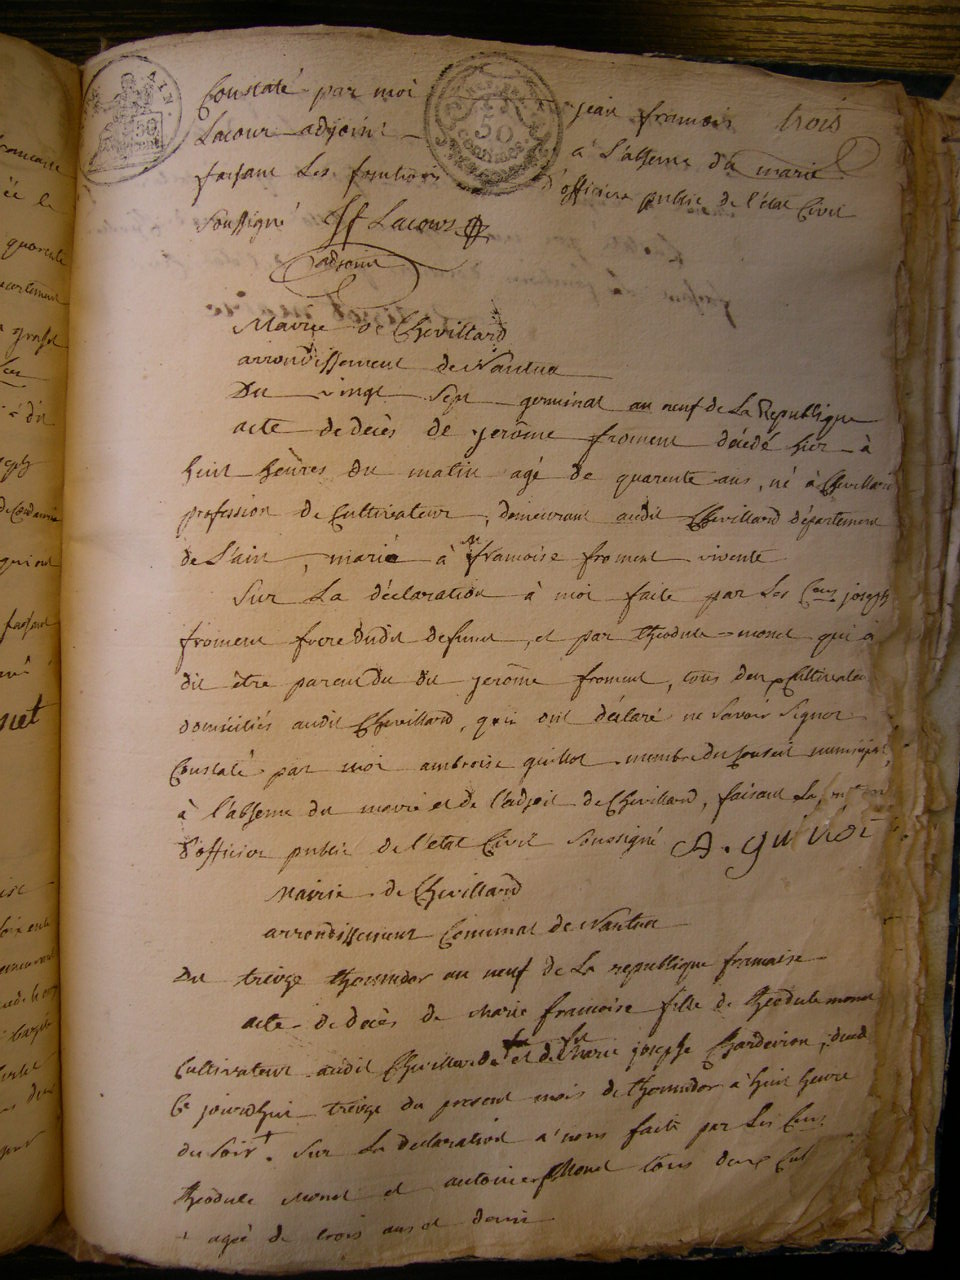 trois
Constaté par moi jean francois
Lacour adjoint a L'absence du maire
faisant Les fonctions d'officier public de l'état Civil
Soussigné Jf Lacour
adjoint
AIN
50
50
Centimes
Mairie de Chevillard
arrondissement de Nantua
Du vingt Sept germinal an neuf de La Republique
acte de decès de jerôme froment décédé hier à
huit heures du matin agé de quarente ans, né à Chevillard
profession de Cultivateur, demeurant audit Chevillard département
de L'ain, marié à francoise froment vivente
Sur La déclaration à moi faite par Les Cens joseph
froment frere dudit defunct, et par théodule monet qui à
dit être parent du dit jerôme froment, tous deux Cultivate
domiciliés audit Chevillard, qui ont déclaré ne Savoir Signer
Constaté par moi ambroise guillot membre du Conseil municipal,
à l'absence du maire et de l'adjoit de Chevillard, faisant La
d'officier public de l'état Civil Soussigné A. guillot
Mairie de Chevillard
arrondissement Communal de Nantua
Du treize thermidor an neuf de La republique francaise
acte de decès de Marie francoise fille de théodule monet
Cultivateur audit Chevillard et de Marie josephe Chardeiron, décédé
Ce jourdhui treize du present mois de thermidor à huit heure
du Soir +. Sur La declaration a nous faite par Les Cens
théodule Monet et antoine Monet tous deux Cul
+ agée de trois ans et demi